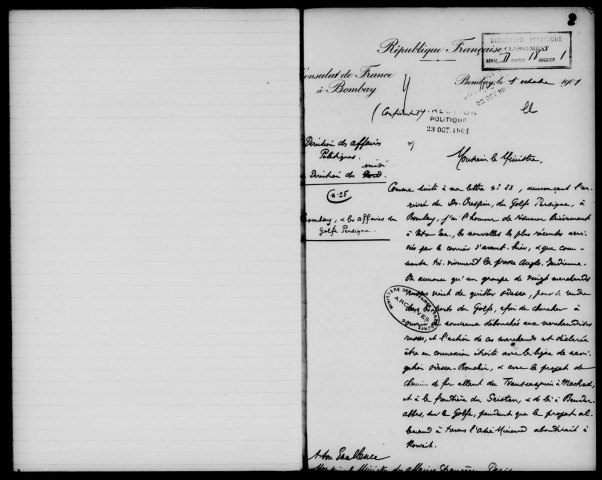 8
DIRECTION POLITIQUE
CLASSEMENT
SÉRIE D CARTON 18 DOSSIER 1
République Française
Consulat de France
à Bombay
Bombay, le 1 octobre 1901
POLITIQUE
23 OCT. 1901
Direction des affaires
Politiques
midi
Direction du Nord.
n. 25
Bombay, & les affaires du
Golfe Persique.
Monsieur le Ministre,
Comme suite à ma lettre n° 23, annonçant l'ar-
rivée du Dr. Crespin, du Golfe Persique, à
Bombay, j'ai l'honneur de résumer brièvement
à Votre Exc., les nouvelles les plus récentes arri-
vées par le courrier d'avant-hier, & que com-
mente vivement la presse Anglo-Indienne.
On annonce qu'un groupe de vingt marchands
russes vient de quitter Odessa, pour se rendre
dans les ports du Golfe, afin de chercher à
nouveaux débouchés aux marchandises
russes, et l'action de ces marchands est déclarée
être en connexion étroite avec la ligne de navi-
gation Odessa-Bouchir, & avec le projet de
chemin de fer allant du Transcaspien à Meched,
et à la frontière du Seistan, & de là à Bender
Abbas, sur le Golfe, pendant que le projet al-
lemand à travers l'Asie Mineure aboutirait à
Koweit.
MINISTÈRE DES AFFAIRES ÉTRANGÈRES
ARCHIVES
A Son Excellence
Monsieur le Ministre des Affaires Étrangères Paris